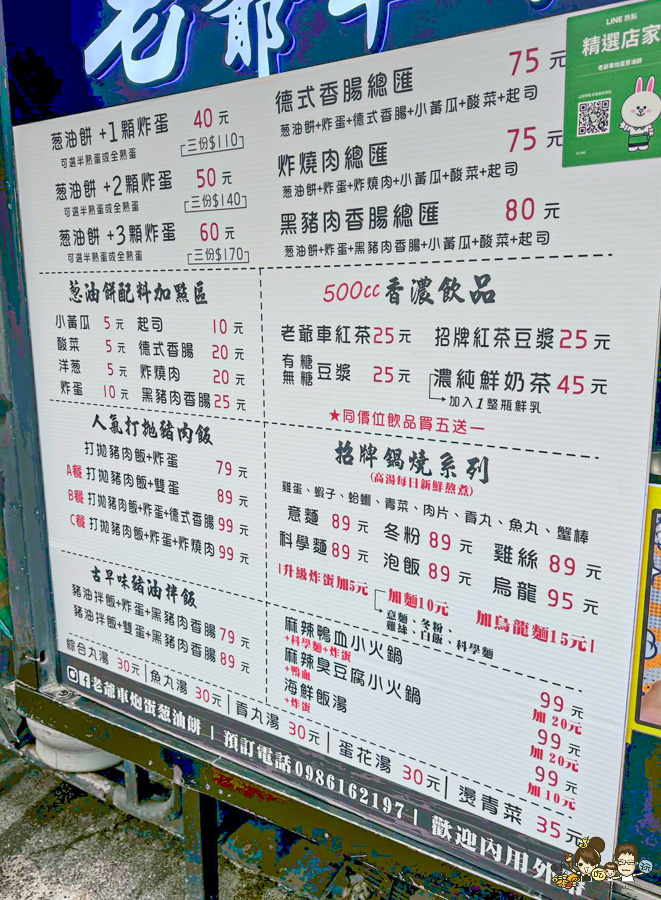 老爺車
LINE 熱點
精選店家
葱油餅 +1顆炸蛋 40元
可選半熟蛋或全熟蛋 三份$110
葱油餅 +2顆炸蛋 50元
可選半熟蛋或全熟蛋 三份$140
葱油餅 +3顆炸蛋 60元
可選半熟蛋或全熟蛋 三份$170
德式香腸總匯 75元
葱油餅+炸蛋+德式香腸+小黃瓜+酸菜+起司
炸燒肉總匯 75元
葱油餅+炸蛋+炸燒肉+小黃瓜+酸菜+起司
黑豬肉香腸總匯 80元
葱油餅+炸蛋+黑豬肉香腸+小黃瓜+酸菜+起司
葱油餅配料加點區
小黃瓜 5元 起司 10元
酸菜 5元 德式香腸 20元
洋葱 5元 炸燒肉 20元
炸蛋 10元 黑豬肉香腸25元
500cc香濃飲品
老爺車紅茶25元 招牌紅茶豆漿25元
有糖
無糖 豆漿 25元 濃純鮮奶茶45元
加入1整瓶鮮乳
★同價位飲品買五送一
人氣打拋豬肉飯
打拋豬肉飯+炸蛋 79元
A餐 打拋豬肉飯+雙蛋 89元
B餐 打拋豬肉飯+炸蛋+德式香腸99元
C餐 打拋豬肉飯+炸蛋+炸燒肉99元
招牌鍋燒系列
(高湯每日新鮮熬煮)
雞蛋、蝦子、蛤蠣、青菜、肉片、貢丸、魚丸、蟹棒
意麵 89元 冬粉 89元 雞絲 89元
科學麵89元 泡飯 89元 烏龍 95元
|升級炸蛋加5元 加麵10元 加烏龍麵15元|
意麵、冬粉、
雞絲、白飯、科學麵
古早味豬油拌飯
豬油拌飯+炸蛋+黑豬肉香腸79元
豬油拌飯+雙蛋+黑豬肉香腸89元
麻辣鴨血小火鍋 99元
+科學麵+炸蛋 加20元
麻辣臭豆腐小火鍋 99元
+鴨血 加20元
海鮮飯湯 99元
+炸蛋 加10元
綜合丸湯 30元|魚丸湯 30元|貢丸湯 30元|蛋花湯 30元|燙青菜 35元
老爺車炮蛋葱油餅 | 預訂電話0986162197| 歡迎內用外帶